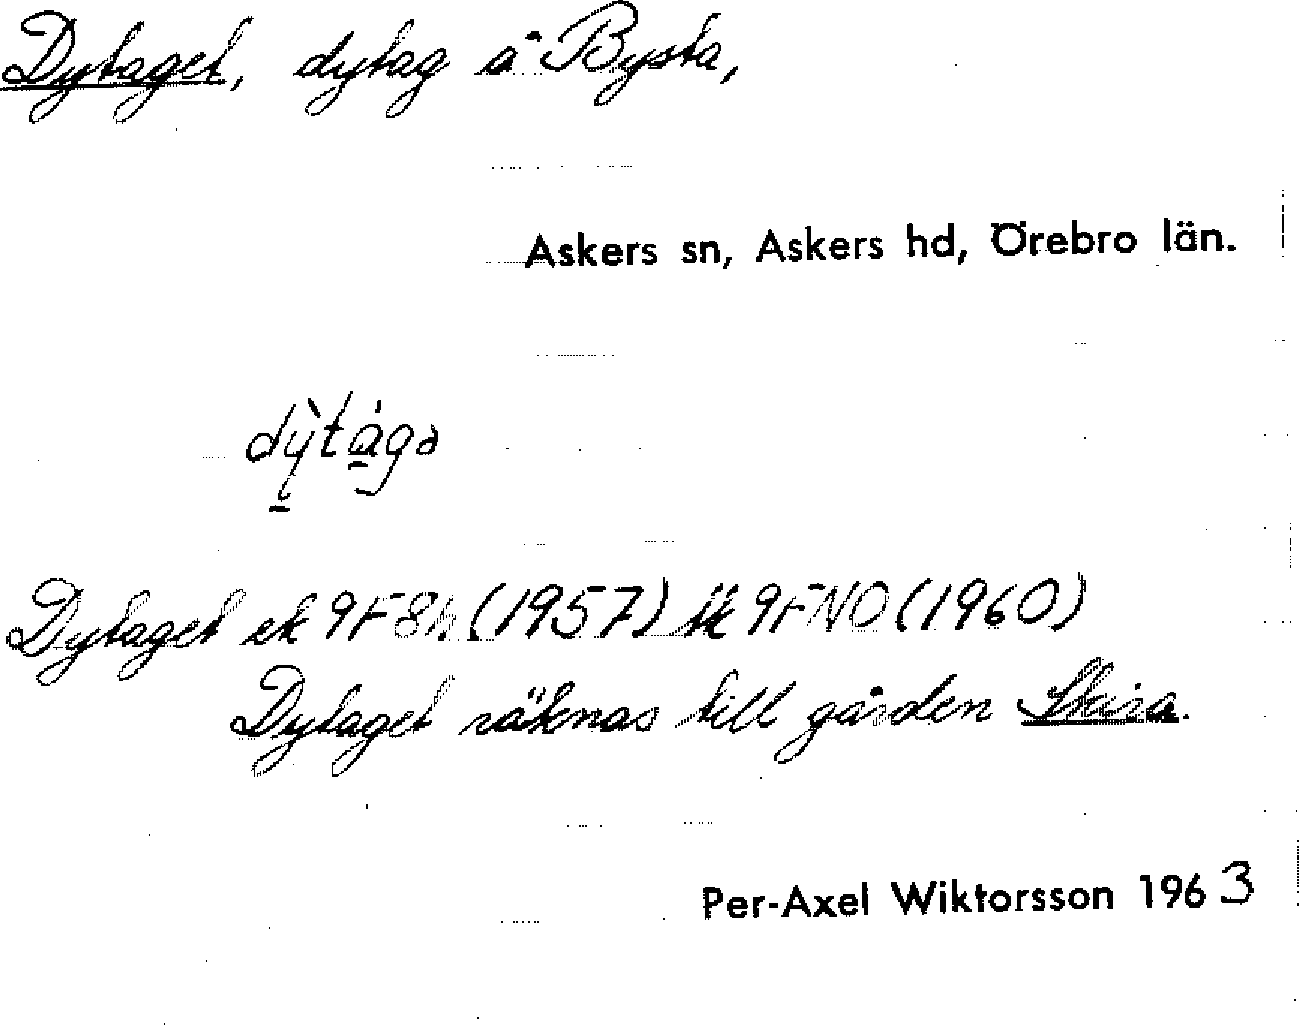 Dytaget, dytag å Bysta,
Askers sn, Askers hd, Örebro län.
dỳtágə
Dytaget ek 9F8h (1957) tk 9FNO (1960)
Dytaget räknas till gården Skira.
Per-Axel Wiktorsson 1963